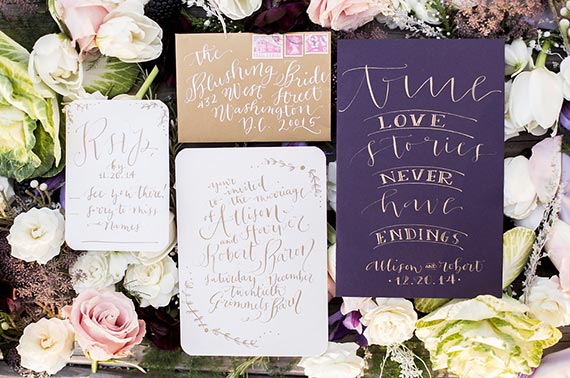 Rsvp
by
11.20.14
See you there!
Sorry to miss
Names
the
Blushing Bride
432 West Street
Washington
D.C. 20015
you're
invited
to the marriage
of Allison
and Harper
Robert Baron
Saturday, December
twentieth
Grammels Barn
true
LOVE
stories
NEVER
have
ENDINGS
Allison and Robert
12.20.14